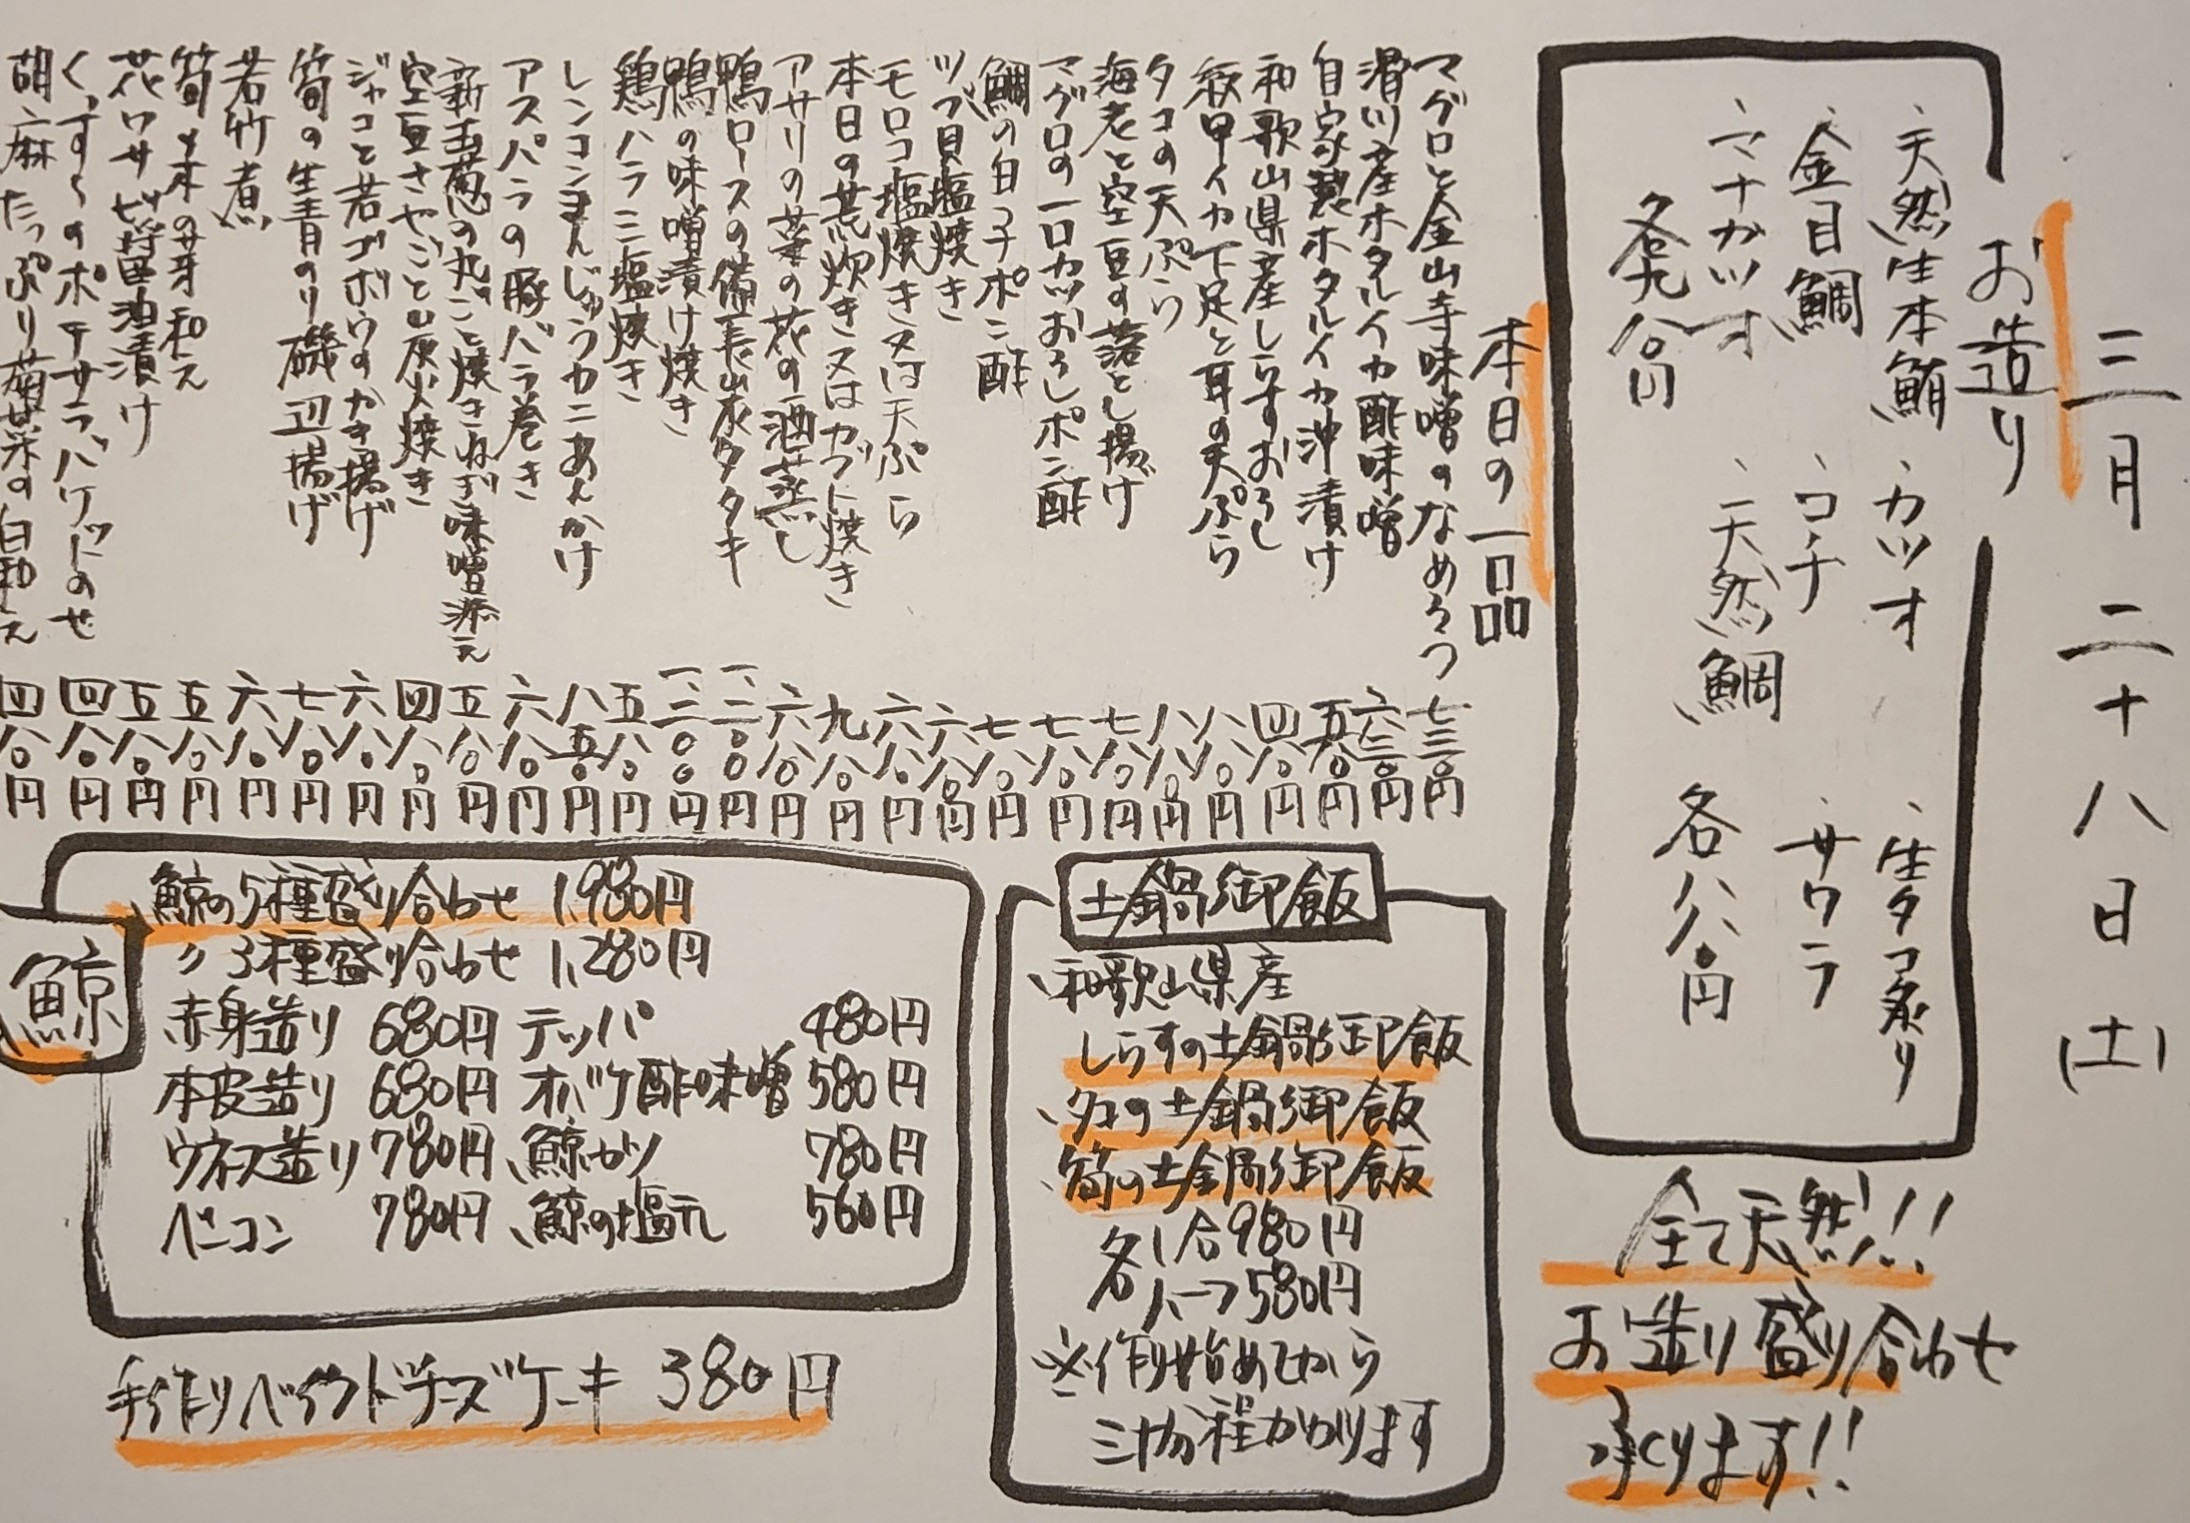 三月二十八日(土)
お造り
、天然生本鮪 、カツオ 、生タコ炙り
、金目鯛 、コチ 、サワラ
、マナガツオ 、天然鯛
各九八〇円 各八八〇円
全て天然!!
お造り盛り合わせ
承ります!!
本日の一品
マグロと金山寺味噌のなめろう 七三〇円
滑川産ホタルイカ酢味噌 六三〇円
自家製ホタルイカ沖漬け 五八〇円
和歌山県産しらすおろし 四八〇円
紋甲イカ下足と耳の天ぷら 八八〇円
タコの天ぷら 八八〇円
海老と空豆の落とし揚げ 七八〇円
マグロの一口カツおろしポン酢 七八〇円
鯛の白子ポン酢 七八〇円
ツブ貝塩焼き 六八〇円
モロコ塩焼き又は天ぷら 六八〇円
本日の荒炊き又はカブト焼き 九八〇円
アサリの菜の花の酒蒸し 六八〇円
鴨ロースの備長炭タタキ 一、二〇〇円
鴨の味噌漬け焼き 一、二〇〇円
鶏ハラミ塩焼き 五八〇円
レンコンまんじゅうカニあんかけ 八五〇円
アスパラの豚バラ巻き 六八〇円
新玉葱の丸ごと焼きねぎ味噌添え 五八〇円
空豆さやごと炭火焼き 四八〇円
ジャコと若ゴボウのかき揚げ 六八〇円
筍の生青のり磯辺揚げ 七八〇円
若竹煮 六八〇円
筍と木の芽和え 五八〇円
花ワサビ醤油漬け 五八〇円
くっすんのポテサラバケットのせ 四八〇円
胡麻たっぷり菊菜の白和え 四八〇円
土鍋御飯
、和歌山県産
しらすの土鍋御飯
、タコの土鍋御飯
、筍の土鍋御飯
各1合980円
各ハーフ580円
※作り始めてから
三十分程かかります
鯨
鯨の5種盛り合わせ 1,980円
〃3種盛り合わせ 1,280円
赤身造り 680円 テッパ 480円
本皮造り 680円 オバケ酢味噌 580円
ウネス造り 780円 、鯨カツ 780円
ベーコン 780円 、鯨の塩元 560円
手作りベイクドチーズケーキ 380円